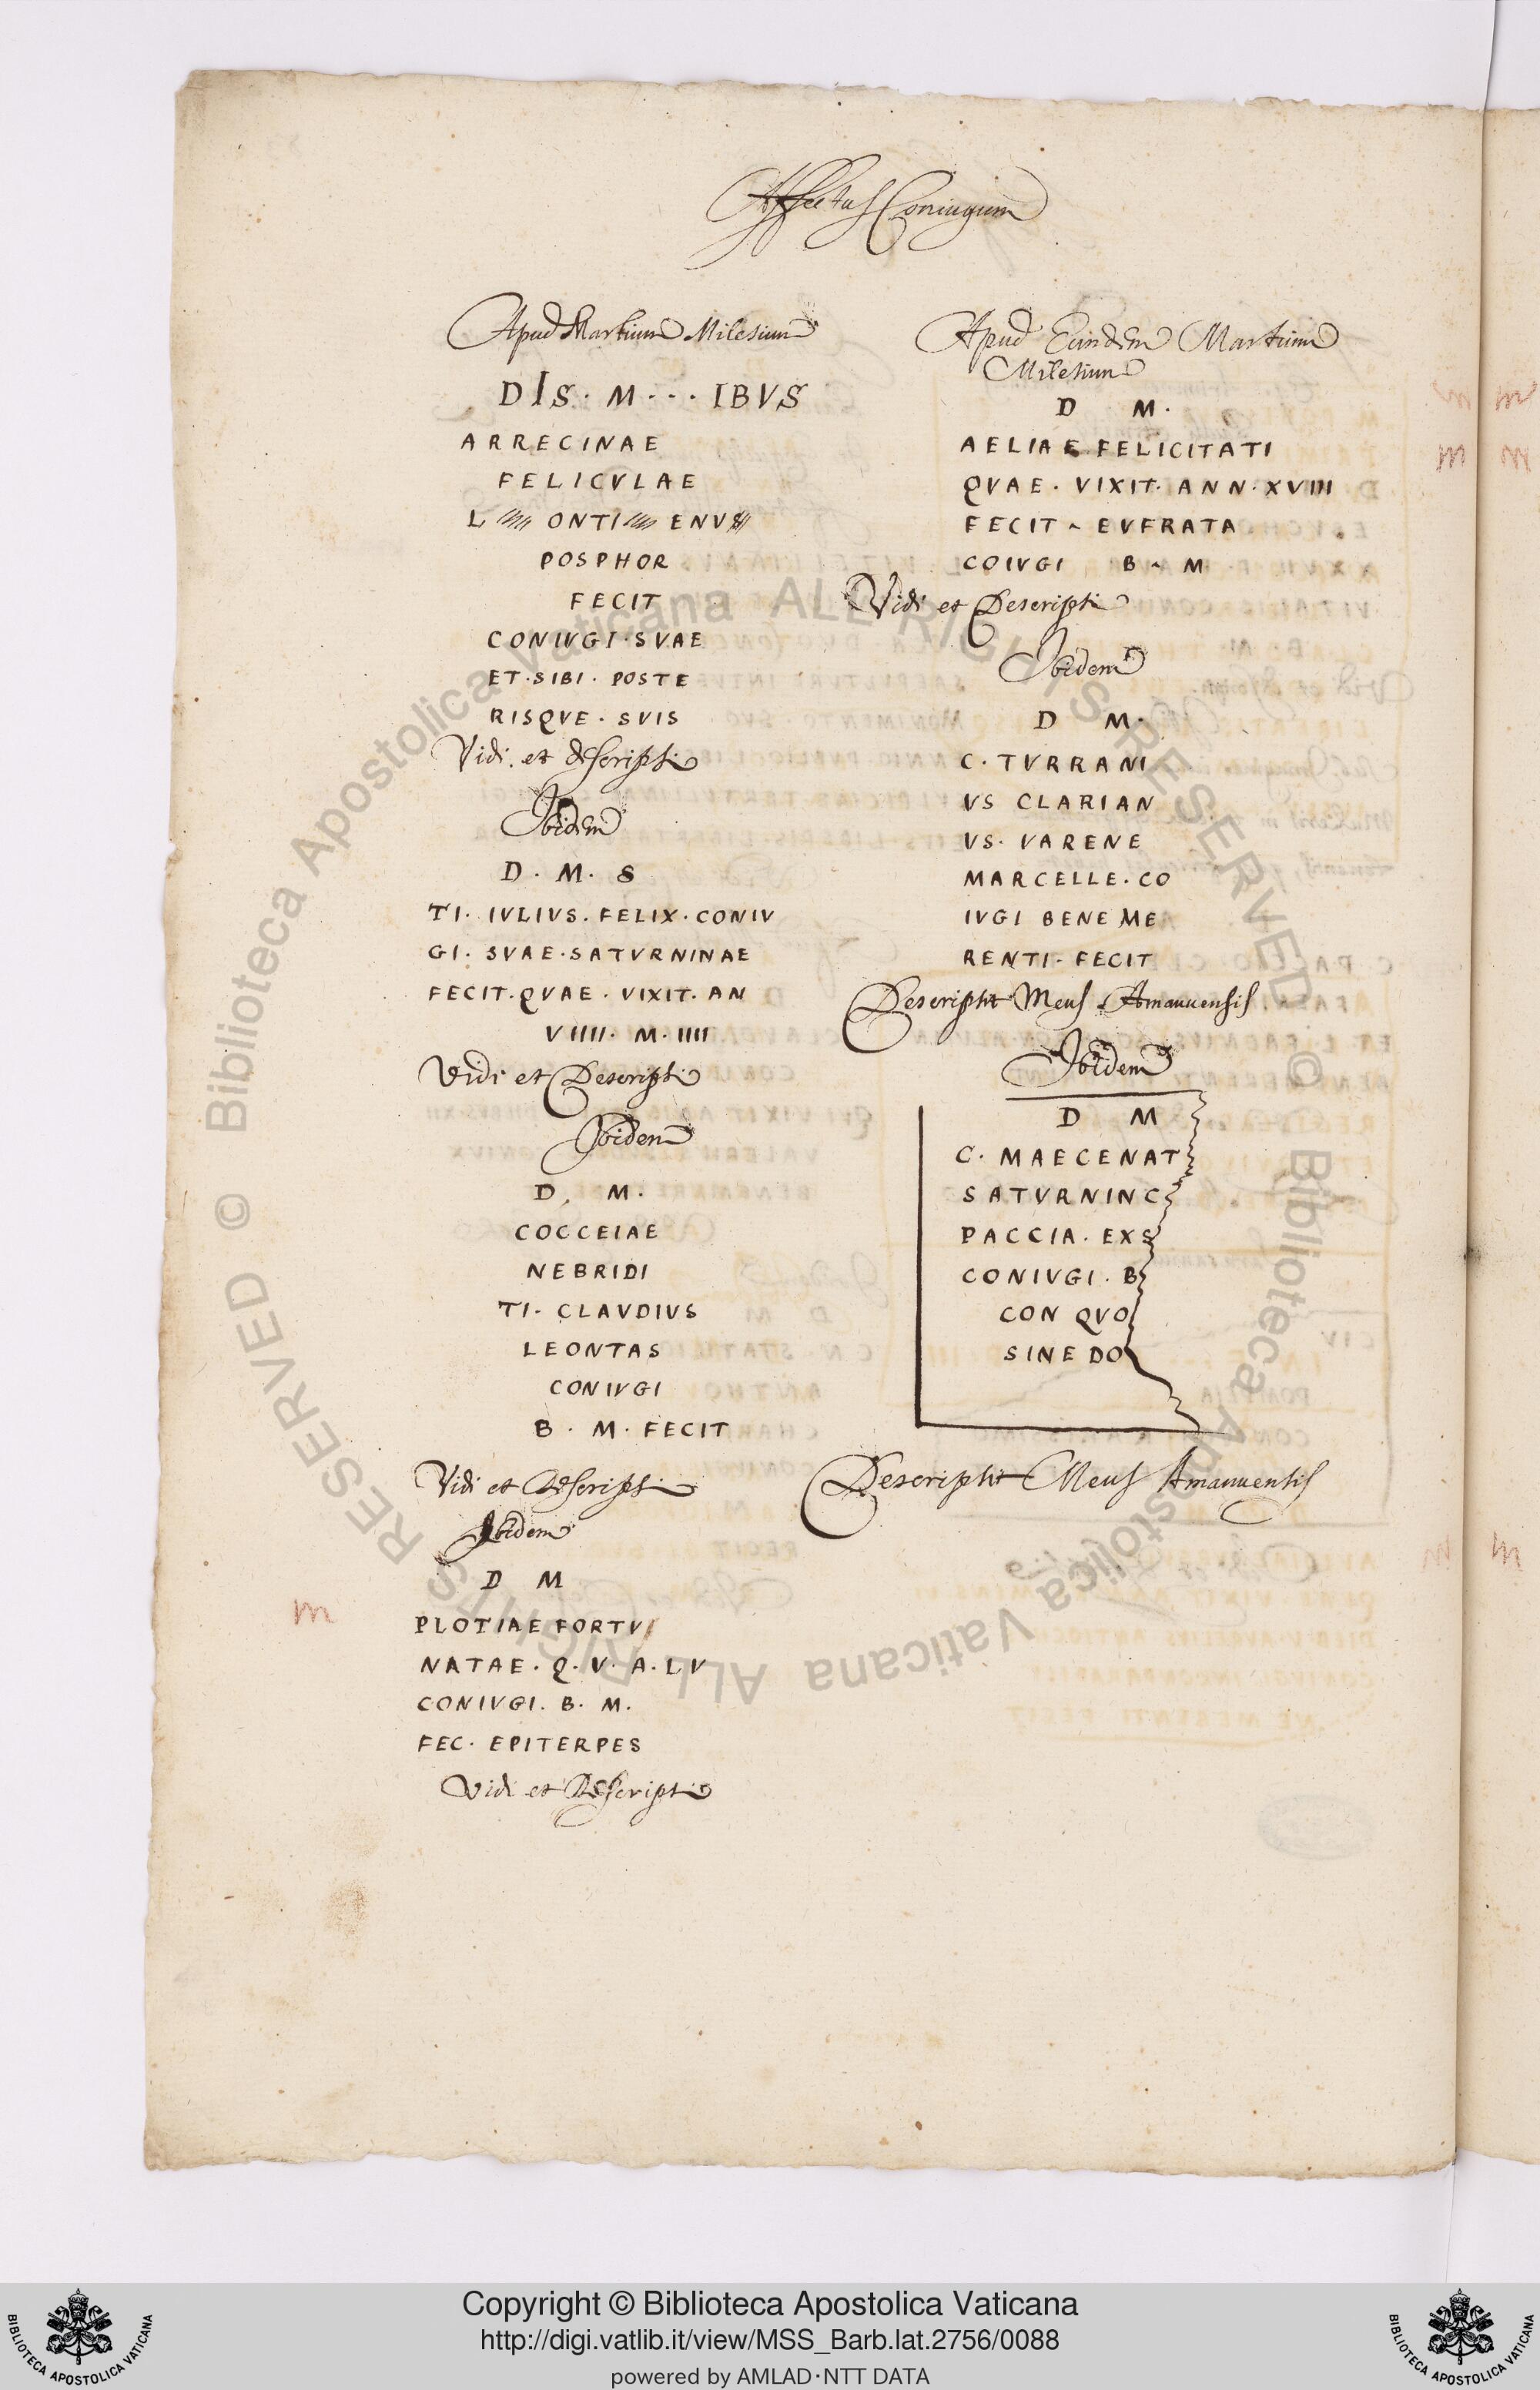 Affectus Coniugum
Apud Martium Milesium
DIS · M · · · IBVS
ARRECINAE
FELICVLAE
L ONTI ENVS
POSPHOR
FECIT
CONIVGI · SVAE
ET · SIBI · POSTE
RISQVE · SVIS
Vidi et descripsi
Ibidem
D · M · S
TI · IVLIVS · FELIX · CONIV
GI · SVAE · SATVRNINAE
FECIT · QVAE · VIXIT · AN
VIIII · M · IIII
Vidi et Descripsi
Ibidem
D · M ·
COCCEIAE
NEBRIDI
TI · CLAVDIVS
LEONTAS
CONIVGI
B · M · FECIT
Vidi et Descripsi
Ibidem
D M
PLOTIAE FORTV
NATAE · Q · V · A · LV
CONIVGI · B · M ·
FEC · EPITERPES
Vidi et Descripsi
m
Apud Eundem Martium
Milesium
D M ·
AELIAE FELICITATI
QVAE · VIXIT · ANN · XVIII
FECIT ~ EVFRATA
COIVGI B ~ M
Vidi et Descripsi
Ibidem
D M ·
C · TVRRANI
VS CLARIAN
VS · VARENE
MARCELLE · CO
IVGI BENE ME
RENTI · FECIT
Descripsit Meus Amanuensis
Ibidem
D M
C · MAECENAT
SATVRNINC
PACCIA · EXS
CONIVGI · B
CON QVO
SINE DO
Descripsit Meus Amanuensis
© Biblioteca Apostolica Vaticana ALL RIGHTS RESERVED © Biblioteca Apostolica Vaticana ALL RIGHTS RESERVED
BIBLIOTECA APOSTOLICA VATICANA
Copyright © Biblioteca Apostolica Vaticana
http://digi.vatlib.it/view/MSS_Barb.lat.2756/0088
powered by AMLAD·NTT DATA
BIBLIOTECA APOSTOLICA VATICANA